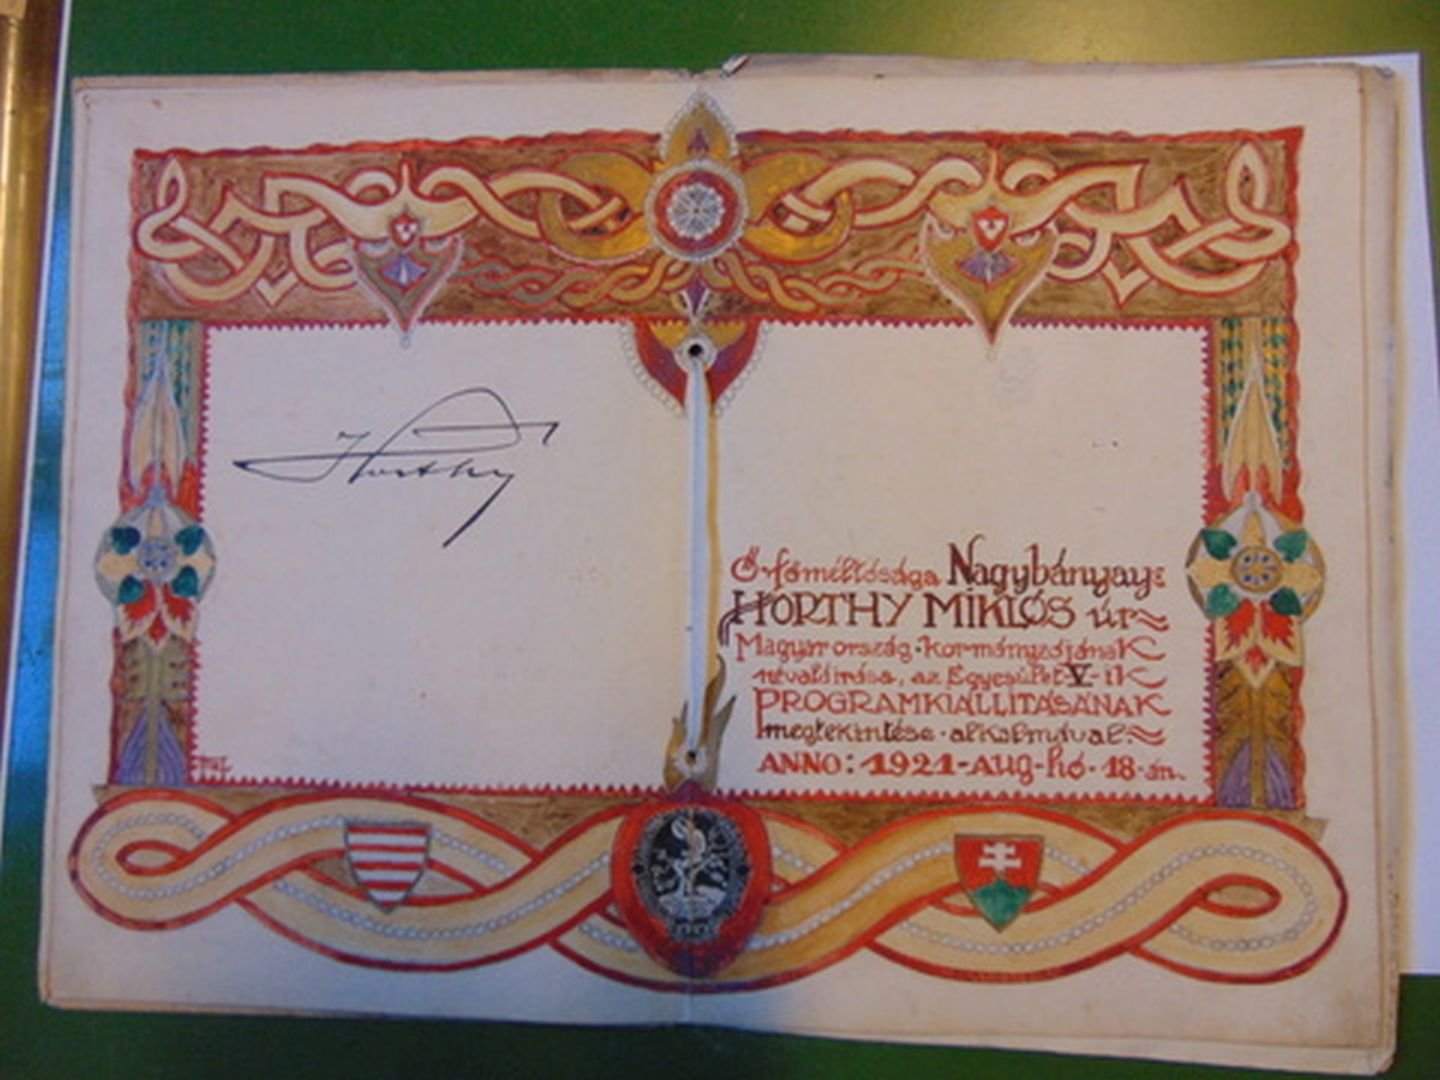 Horthy
Ő-főméltósága Nagybányay:
HORTHY MIKLÓS úr
Magyarország-kormányzójának
névaláírása, az Egyesület-V-ik
PROGRAMKIÁLLITÁSÁNAK
megtekintése-alkalmával.
ANNO: 1921-AUG-hó-18-án.